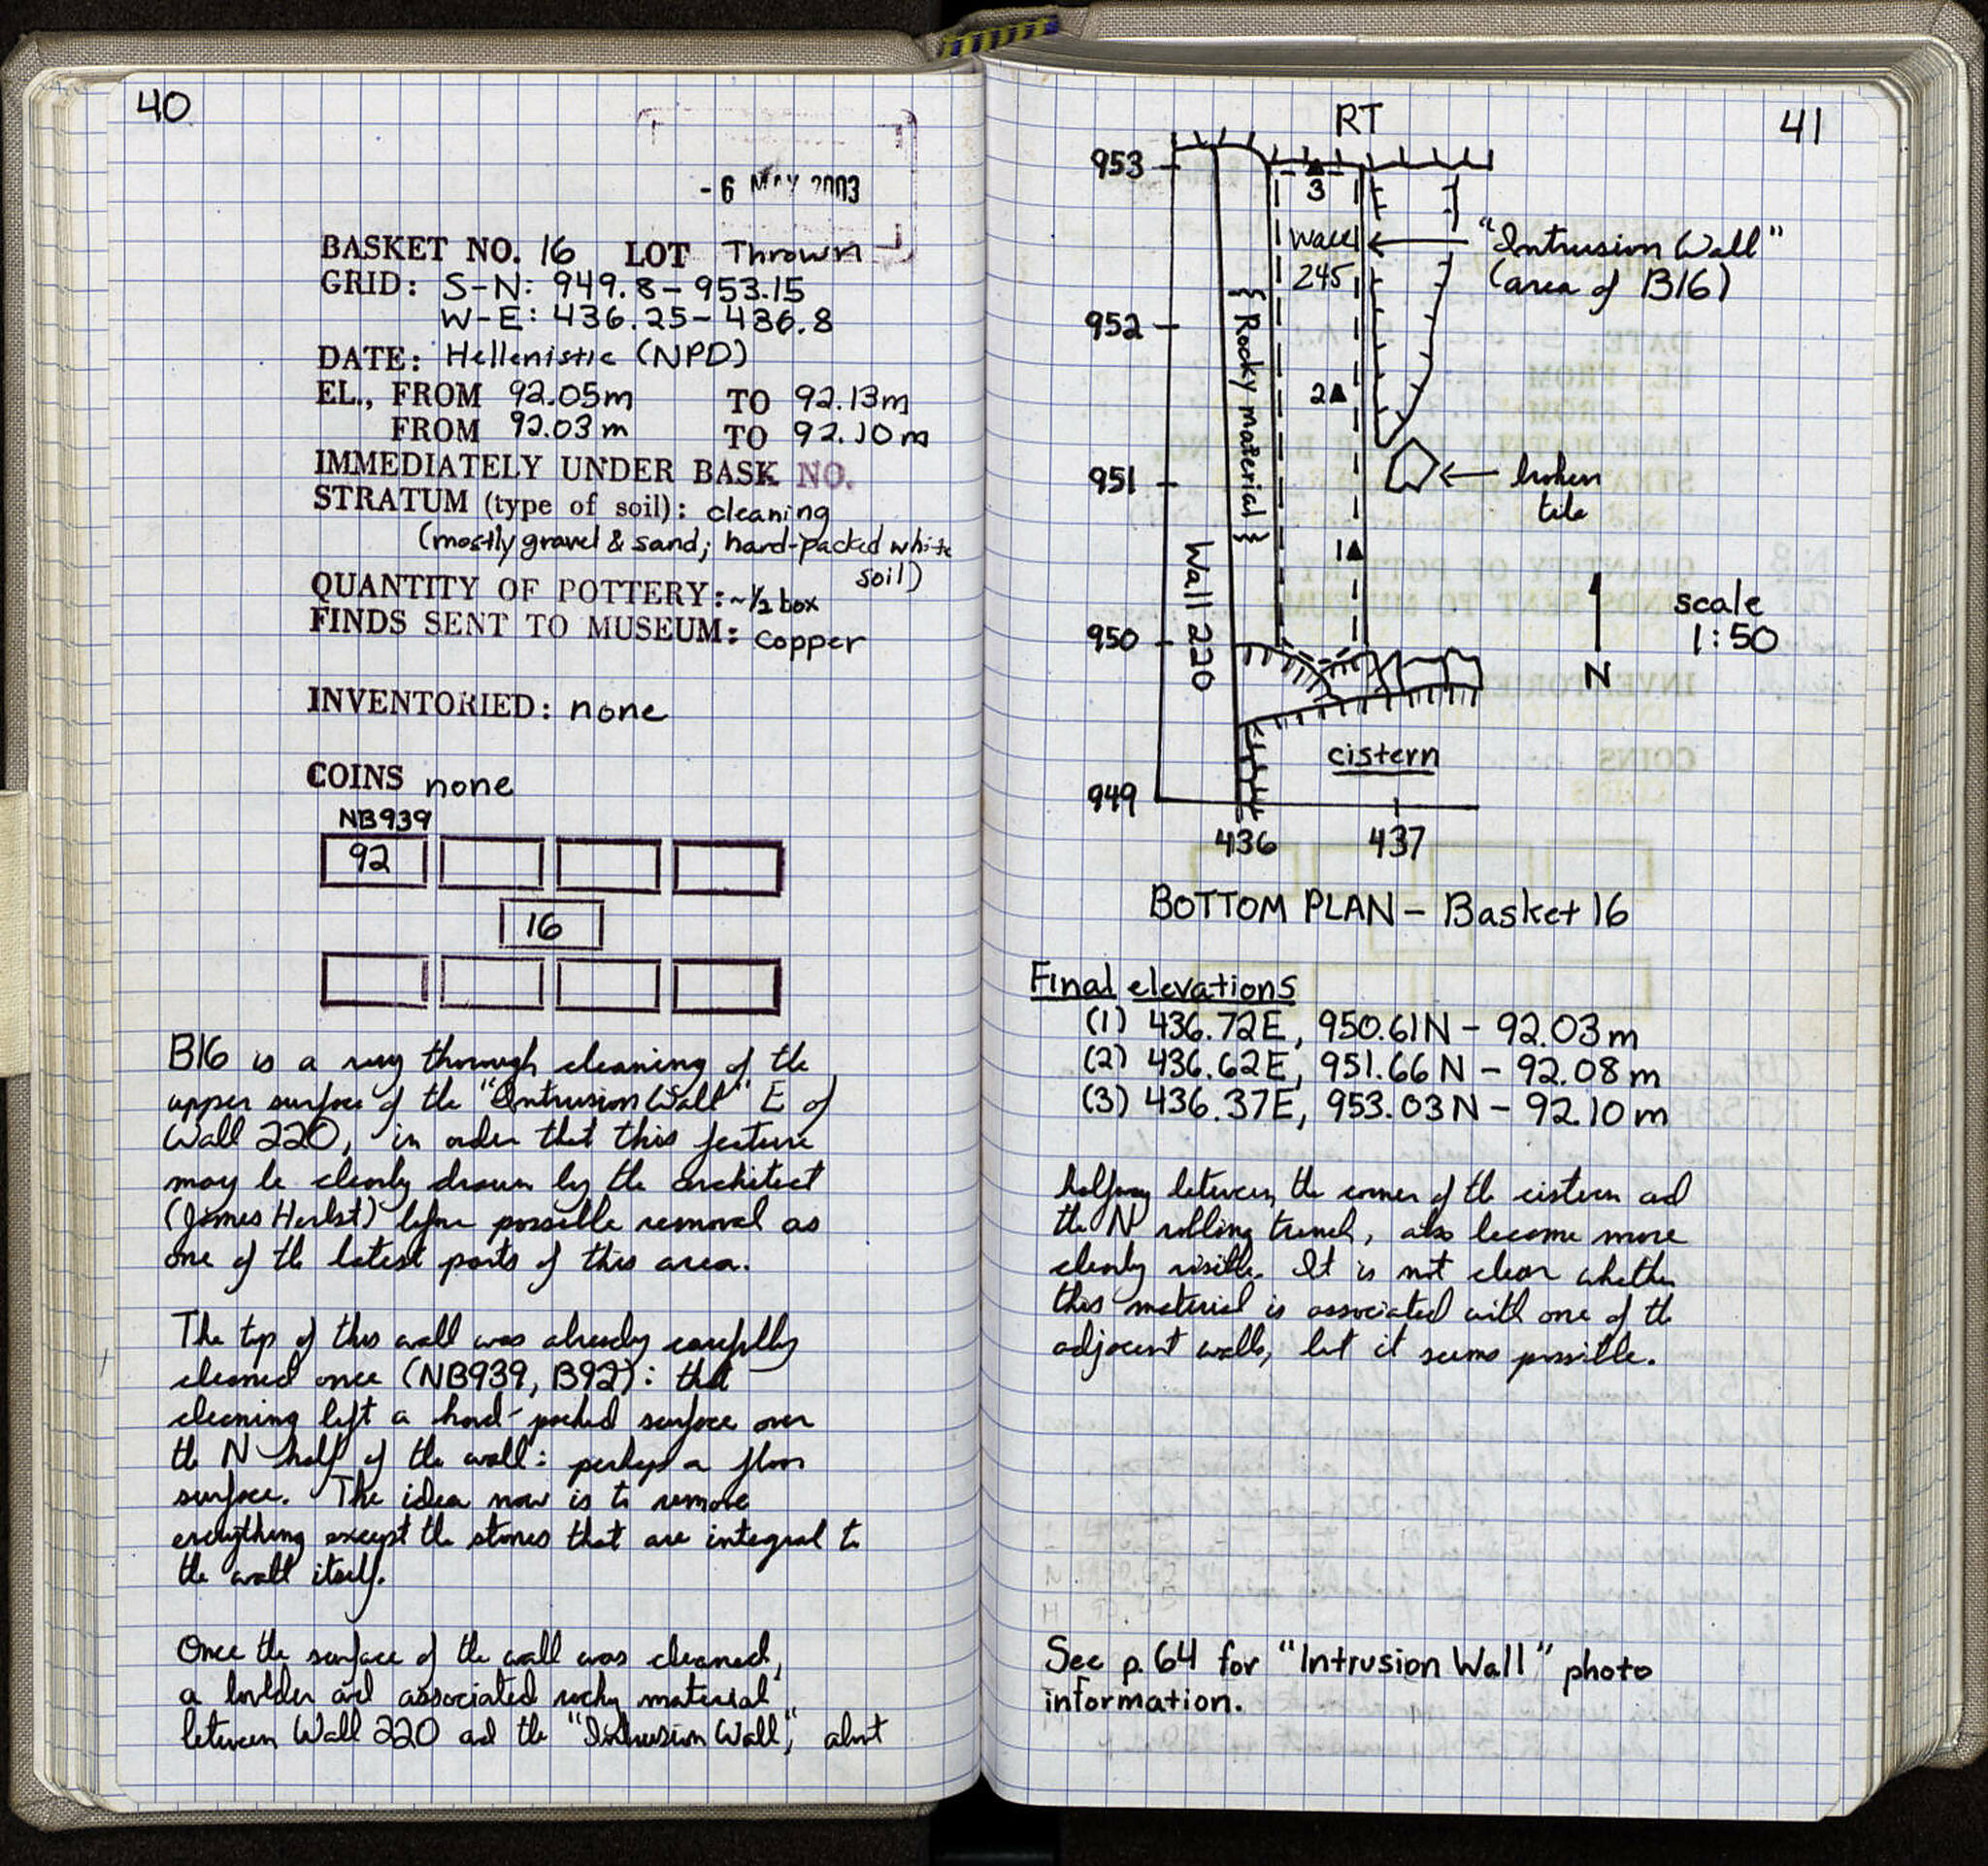 40
- 6 MAY 2003
BASKET NO. 16 LOT Thrown
GRID: S-N: 949.8-953.15
W-E: 436.25-436.8
DATE: Hellenistic (NPD)
EL., FROM 92.05m TO 92.13m
FROM 92.03m TO 92.10m
IMMEDIATELY UNDER BASK NO.
STRATUM (type of soil): cleaning
(mostly gravel & sand; hard-packed white
soil)
QUANTITY OF POTTERY: ~1/2 box
FINDS SENT TO MUSEUM: copper
INVENTORIED: none
COINS none
NB939
92
16
B16 is a very thorough cleaning of the
upper surface of the "Intrusion Wall" E of
Wall 220, in order that this feature
may be clearly drawn by the architect
(James Herbst) before possible removal as
one of the latest parts of this area.
The top of this wall was already carefully
cleaned once (NB939, B92): that
cleaning left a hard-packed surface over
the N half of the wall: perhaps a floor
surface. The idea now is to remove
everything except the stones that are integral to
the wall itself.
Once the surface of the wall was cleaned,
a boulder and associated rocky material
between Wall 220 and the "Intrusion Wall", about
41
RT
953
3
wall
245
"Intrusion Wall"
(area of B16)
952
{Rocky material}
2
951
broken
tile
1
Wall 220
950
N
scale
1:50
cistern
949
436 437
BOTTOM PLAN - Basket 16
Final elevations
(1) 436.72E, 950.61N - 92.03m
(2) 436.62E, 951.66N - 92.08m
(3) 436.37E, 953.03N - 92.10m
halfway between the corner of the cistern and
the N robbing trench, also became more
clearly visible. It is not clear whether
this material is associated with one of the
adjacent walls, but it seems possible.
See p. 64 for "Intrusion Wall" photo
information.